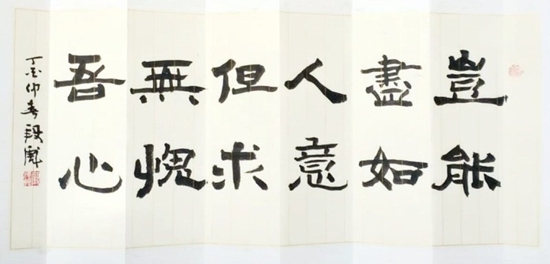 豈能
盡如
人意
但求
無愧
吾心
丁亥仲春